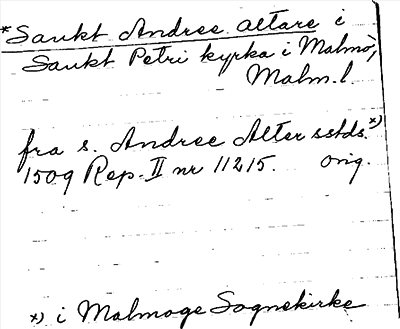 *Sankt Andree altare i
Sankt Petri kyrka i Malmö,
Malm.l.
fra s. Andree Alter sstds.*)
1509 Rep. II nr 11215. orig.
*) i Malmøge Sognekirke